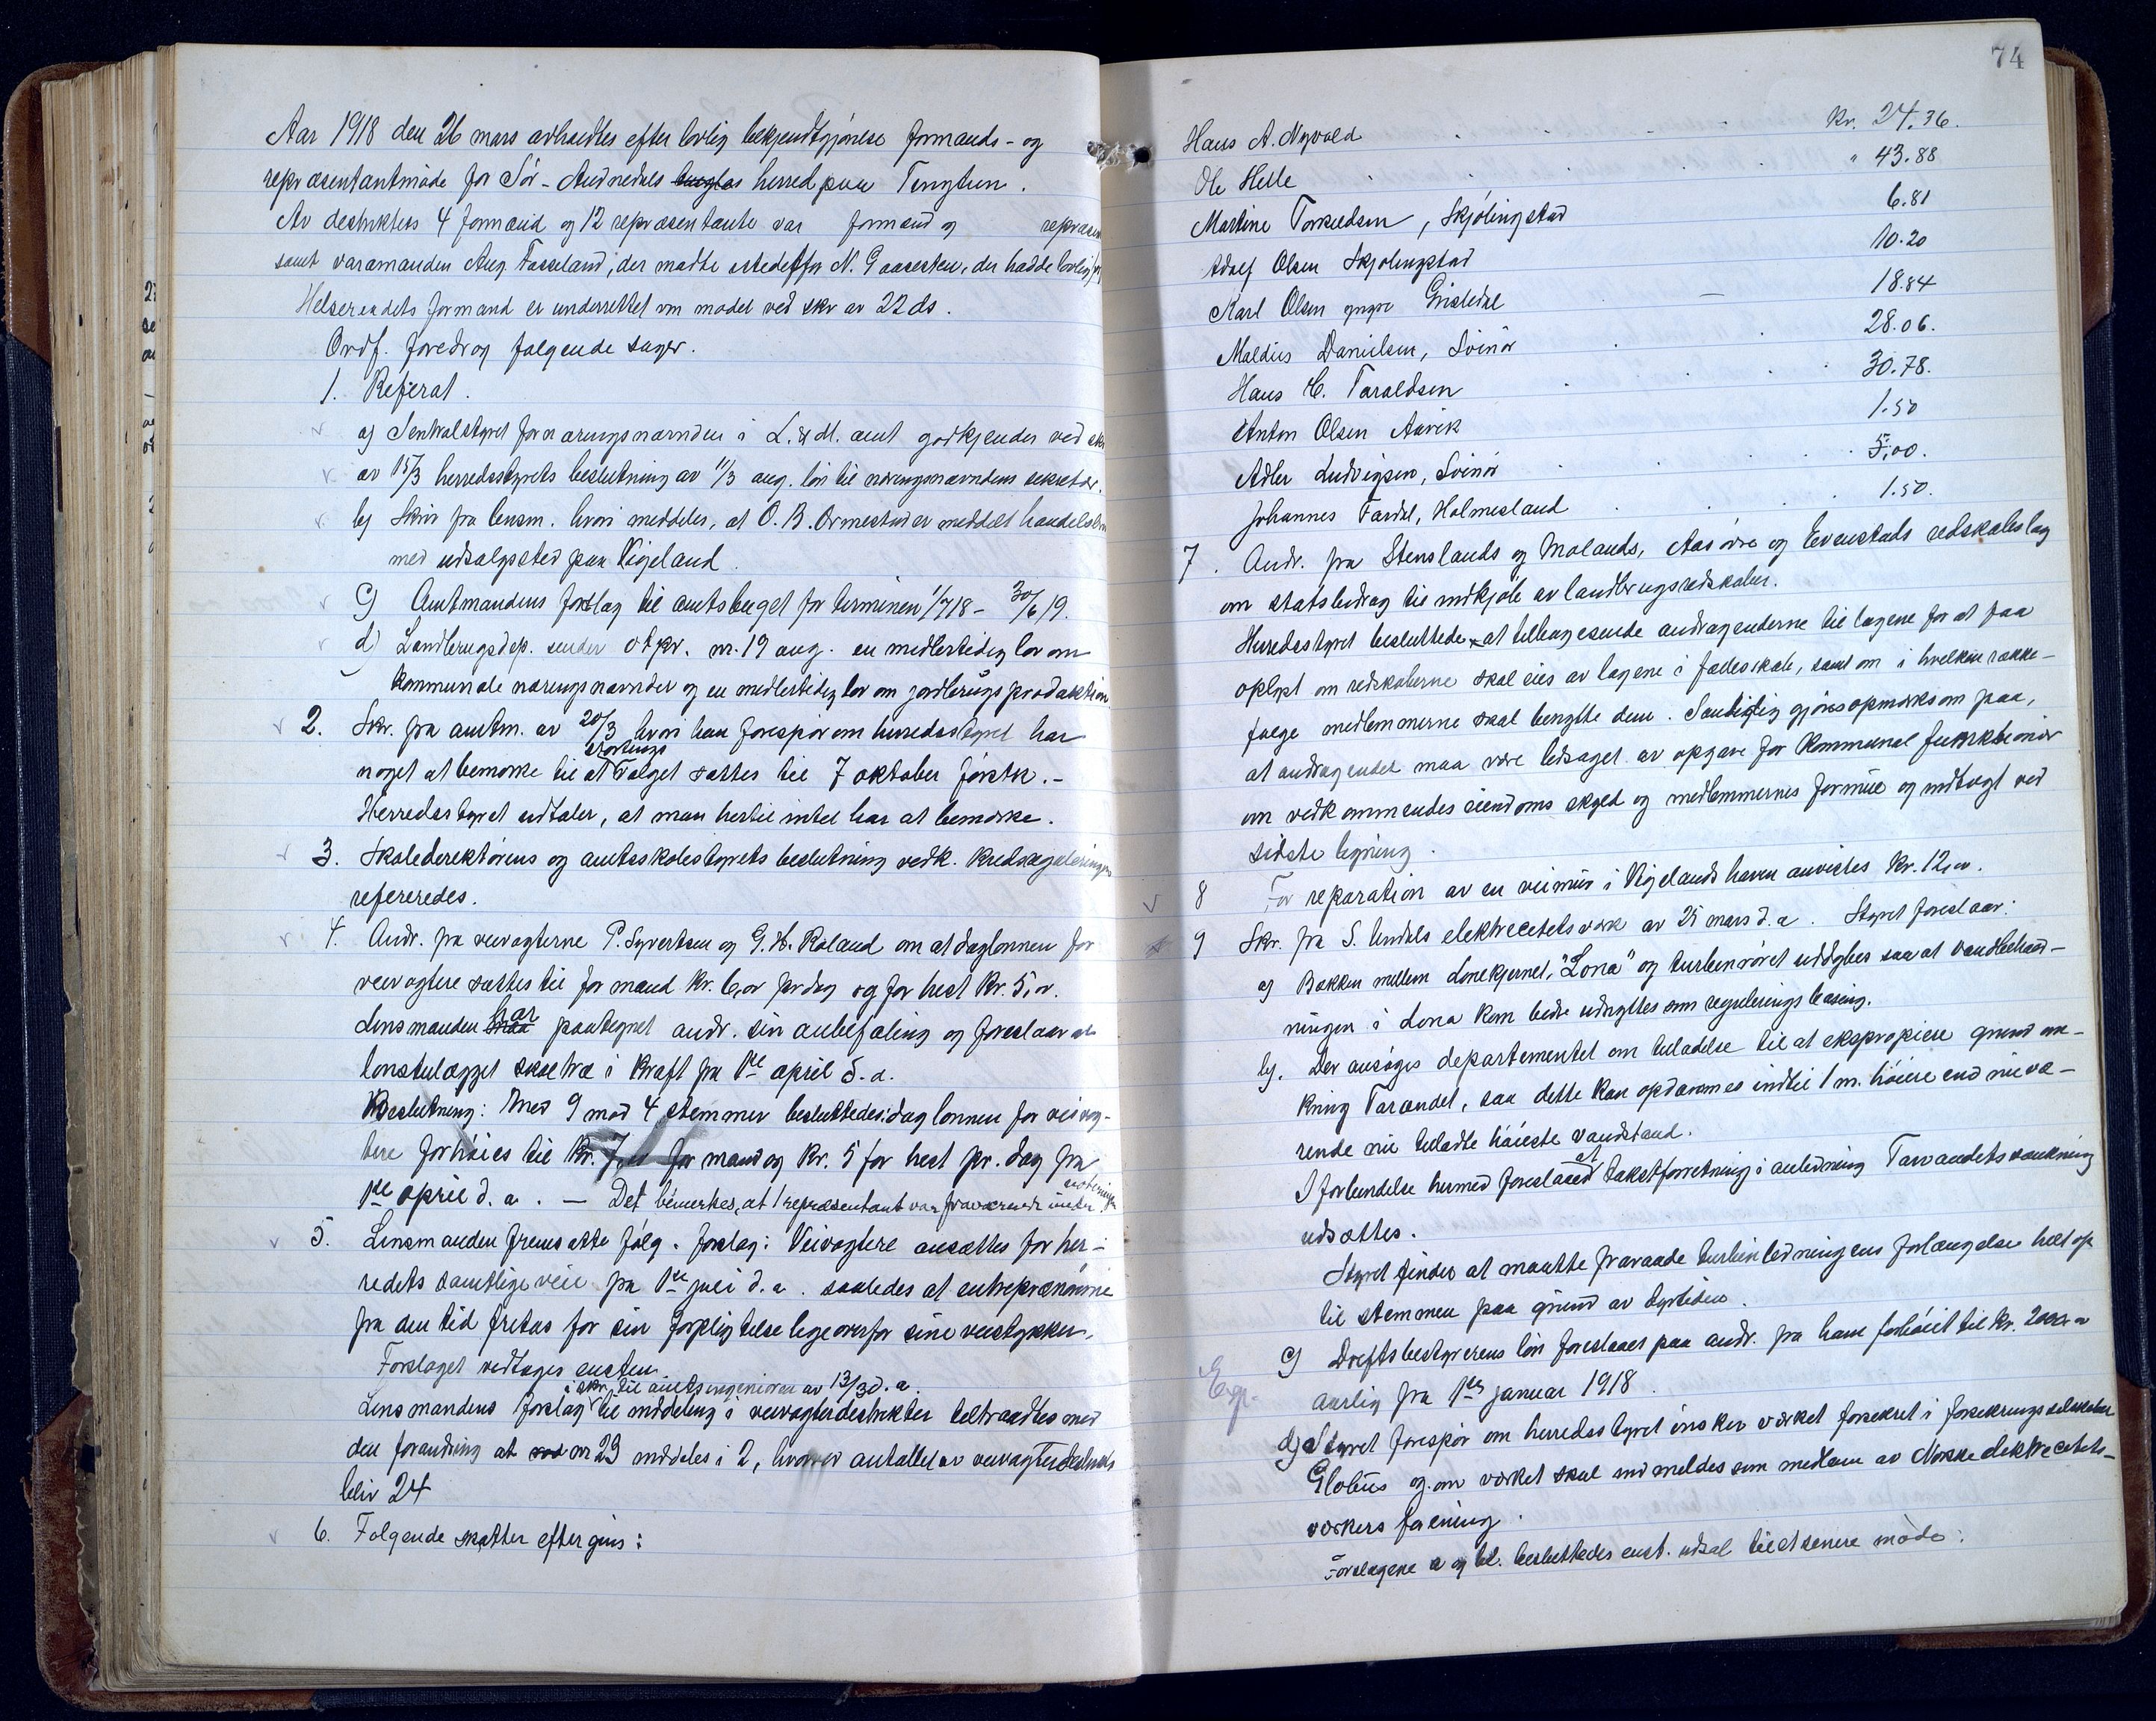 Aar 1918 den 26 mars avholdtes efter lovlig bekjendtgjørelse formands- og
repræsentantmøde for Sør-Audnedals herred paa Tengtun.
Av destriktets 4 formænd og 12 repræsentante var formænd og repræsen
samt varamanden Aug. Fasseland, der mødte istedetfor N. Gaasesten, der hadde lovlig
Helseraadets formand er underrettet om mødet ved skr av 22 ds.
Ordf. foredrog følgende sager.
1. Referat.
a) Sentralstyret for næringsnævnden i L. & M. amt godkjender ved skr
av 15/3 herredsstyrets beslutning av 11/3 ang. løn til næringsnævndens sekretær.
b) Skriv fra lensm. hvori meddeles, at O. B. Ormestad er meddelt handels
med udsalgsted paa Vigeland.
c) Amtmandens forslag til amtsbuget for terminen 1/7 18 - 30/6 19.
d) Landbrugsdep. sender ot.pr. nr. 19 ang. en midlertidig lov om
kommunale næringsnævnder og en midlertidig lov om jordbrugsproduktion
2. Skr. fra amtm. av 20/3 hvori han forespør om herredsstyret har
noget at bemerke til at stortings valget sættes til 7 oktober førstk. -
Herredsstyret udtaler, at man hertil intet har at bemerke.
3. Skoledirektørens og amtsskolestyrets beslutning vedk. kredsregulering
refereredes.
4. Andr. fra veivogterne P. Syvertsen og G. H. Roland om at daglønnen for
veivogtere sættes til for mand kr. 6,00 pr dag og for hest kr. 5,00.
Lensmanden har paategnet andr. sin anbefaling og foreslaar at
lønstillægget skal træ i kraft fra 1ste april d. a.
Beslutning: Med 9 mod 4 stemmer besluttedes: daglønnen for veivog-
tere forhøies til kr. 7,00 for mand og kr. 5 for hest pr. dag fra
1ste april d. a. - Det bemerkes, at 1 repræsentant var fraværende under voteringen
5. Lensmanden fremsatte følg. forslag: Veivogtere ansættes for her-
redets samtlige veie fra 1ste juli d. a. saaledes at entreprenørerne
fra den tid fritas for sin forpligtelse ligeoverfor sine veistykker.
Forslaget vedtages enstem.
Lensmandens forslag i skr. til amtsingeniøren av 13/3 d. a. til inddeling i veivogterdestrikter tiltraadtes med
den forandring at nr 23 inddeles i 2, hvorved antallet av veivogterdestrikts
bliv 24
6. Følgende skatter eftergives:
74
Hans A. Nyvold kr. 24.36.
Ole Helle " 43.88
Martine Torkildsen, Skjølingstad 6.81
Adolf Olsen Skjølingstad 10.20
Karl Olsen yngre Gisledal 18.84
Maldius Danielsen, Svinør 28.06.
Hans C. Taraldsen 30.78.
Anton Olsen Aavik 1.50
Adler Ludvigsen, Svinør 5,00.
Johannes Fardal, Holmesland 1.50.
7. Andr. fra Stenslands og Molands, Aasøre og Evenstads redskabslag
om statsbidrag til indkjøb av landbrugsredskaber.
Herredsstyret besluttede at tilbagesende andragenderne til lagene for at faa
oplyst om redskaberne skal eies av lagene i fælesskab, samt om i hvilken række-
følge medlemmerne skal benytte dem. Samtidig gjøres opmerksom paa,
at andragendet maa være ledsaget av opgave for kommunal funktionær
om vedkommendes eiendoms skyld og medlemmernes formue og indtægt ved
sidste ligning.
8 For reparation av en veimur i Vigelands haven anvistes kr. 12,00.
9 Skr. fra S. Undals elektrecetetsverk av 25 mars d. a. Styret foreslaar:
a) Bækken mellem Lonekjernet, "Lona" og turbinrøret uddybes saa at vandbehold-
ningen i Lona kan bedre udnyttes som regulerings basseng.
b). Der ansøges departementet om tilladelse til at ekspropiere grund om-
kring Tarvandet, saa dette kan opdæmmes indtil 1 m. høiere end nuvæ-
rende nu tilladte høieste vandstand.
I forbindelse hermed foreslaaes at takstforretning i anledning Tarvandets sænkning
udsættes.
Styret finder at maatte fraraade turbinledningens forlængelse helt op
til stemmen paa grund av dyrtiden.
Exp. c) Driftsbestyrerens løn foreslaaes paa andr. fra ham forhøiet til kr. 2000.00
aarlig fra 1ste januar 1918.
d) Styret forespør om herredsstyret ønsker verket forsikret i forsikringsselskabet
Globus og om verket skal indmeldes som medlem av Norske elektrecetets-
verkers forening.
Forslagene a og b. besluttedes enst. udsat til et senere møde.